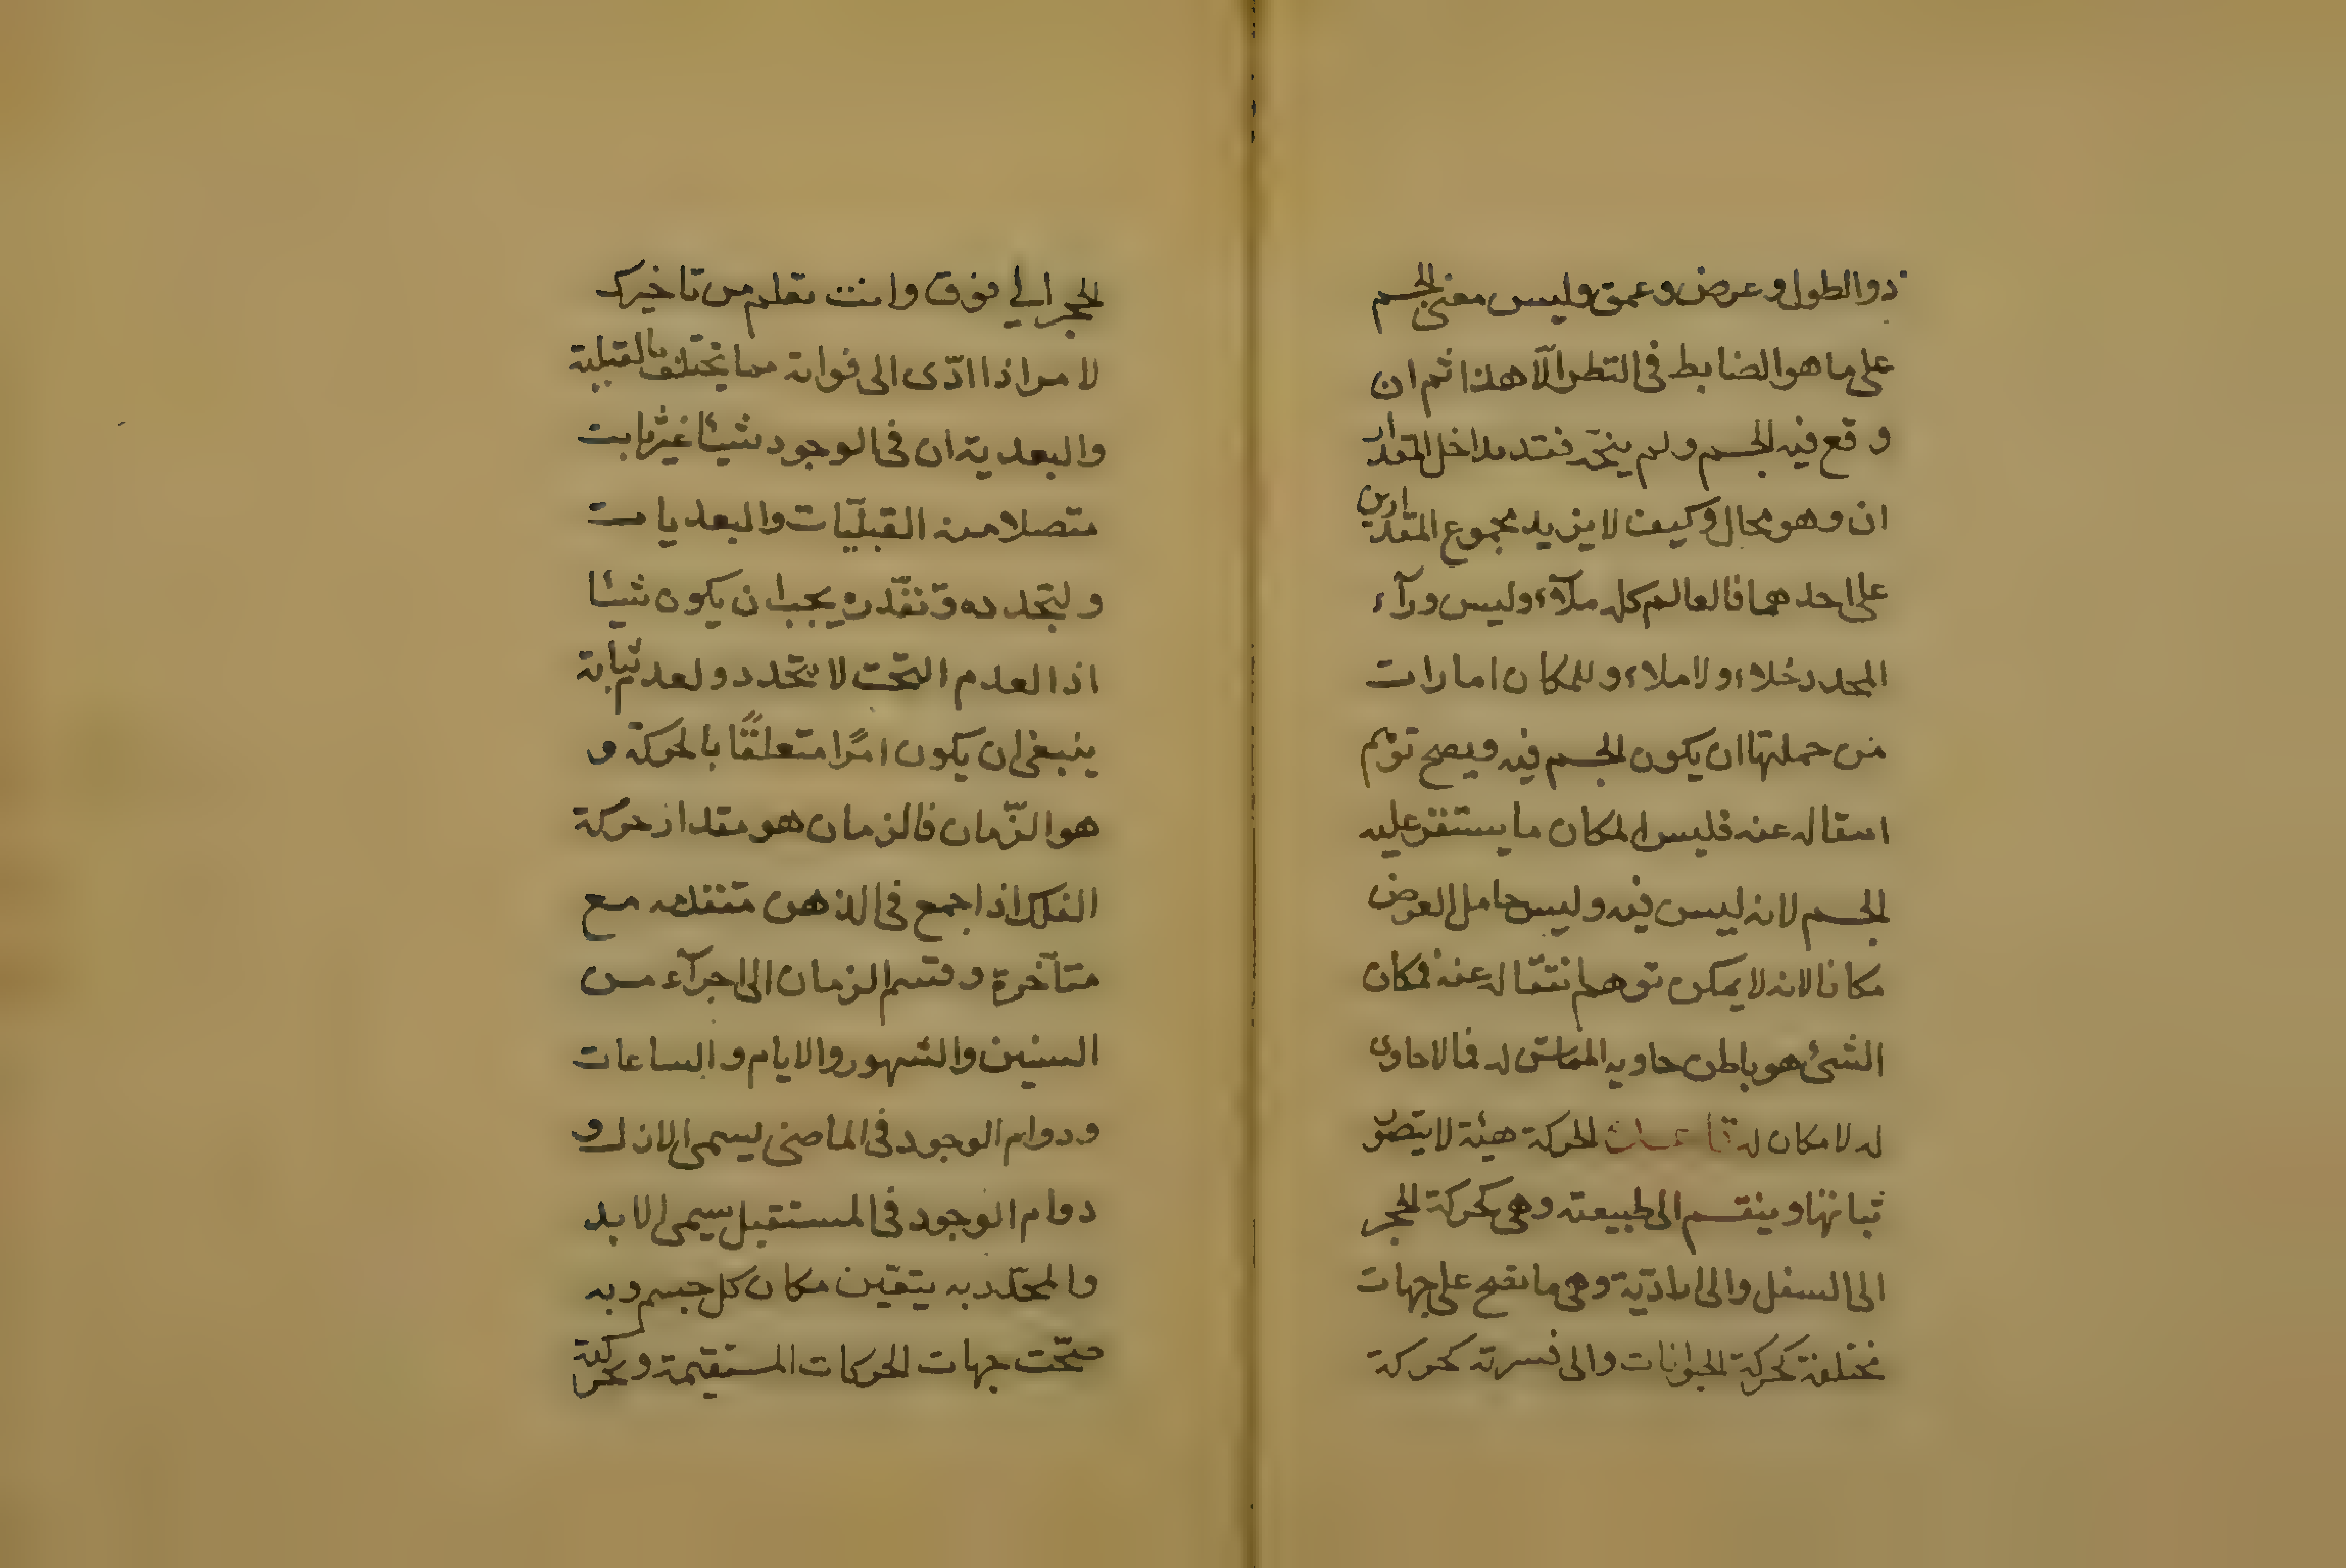 ذوا الطول وعرض وعمق وليس معنى الجسم
على ما هو الضابط فى التطر الّا هذا ثم ان
وقع فيه الجسم ولم ينحّ فقد مداخل المقدار
ان وهو محال وكيف لا يزيد مجموع المقدارين
على احدهما فالعالم كله ملآء وليس ورآء
المحدد خلاء ولا ملاء وللمكان امارات
من حملتها ان يكون الجسم فيه ويصح توهم
انتقاله عنه فليس المكان ما يستقر عليه
الجسم لانه ليس فيه وليس حامل العرض
مكانا لانه لا يمكن توهم انتقاله عنه فمكان
الشئ هو باطن حاويه المماسّ له فما لا حاوى
له لا مكان له الحركة هيئة لا يتصوّر
ثباتها وينقسم الى طبيعته وهى كحركة الحجر
الى السفل والى ارادّية وهى ما تقع على جهات
مختلفة كحركة الحيوانات والى قسرته كحركة
الحجر الى فوق وانت تعلم من تاخيرك
لا مر اذا ادّى الى فواته مما يختلف بالقبلية
والبعدية ان فى الوجود شيئا غير ثابت
متصلا منه القبليّات والبعديات
ولتجدده وتقدّره يجب ان يكون شيئا
اذا العدم البحت لا يتحدد ولعدم ثباته
ينبغى ان يكون امرًا متعلقًا بالحركة و
هو الزّمان فالزمان هو مقدار حركة
الفلك اذا جمع فى الذهن متقدمه مع
متأخرة وقسم الزمان الى اجزآء من
السنين والشهور والايام والساعات
ودوام الوجود فى الماضى يسمى الازل و
دوام الوجود فى المستقبل سيمى الابد
والمحدّد به يتعّين مكان كل جسم وبه
صحّت جهات الحركات المستقيمة وحركة